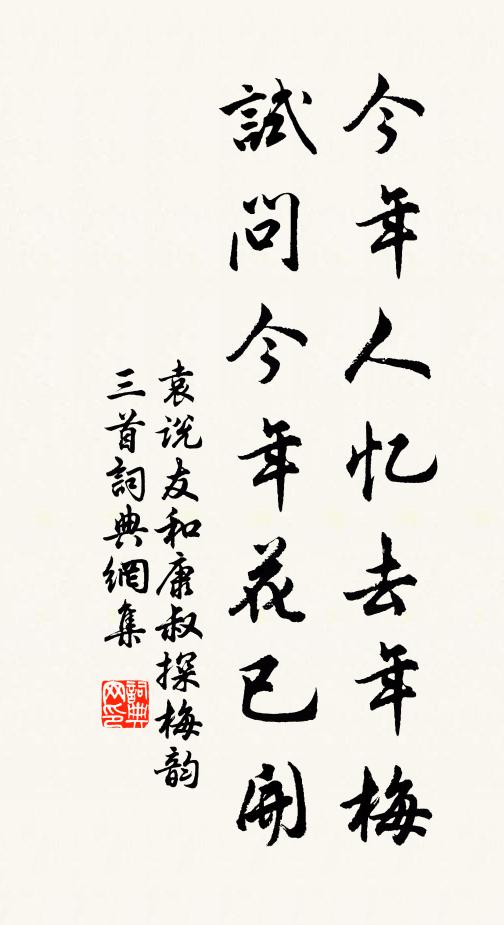 今年人忆去年梅
試問今年花已開
袁说友和康叔探梅韵
三首詞典網集
詞典网印